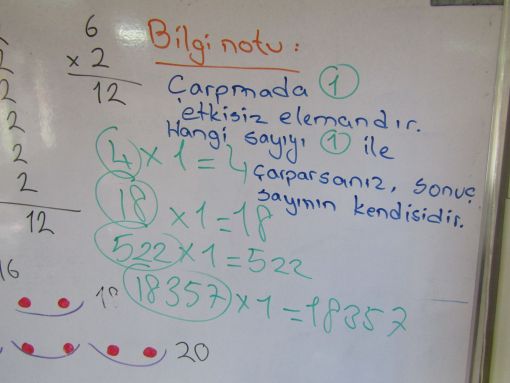 6
× 2
12
2
2
2
2
2
12
Bilgi notu :
Çarpmada 1
etkisiz elemandır.
Hangi sayıyı 1 ile
çarparsanız, sonuç
sayının kendisidir.
4 × 1 = 4
18 × 1 = 18
522 × 1 = 522
18357 × 1 = 18357
16
18
20